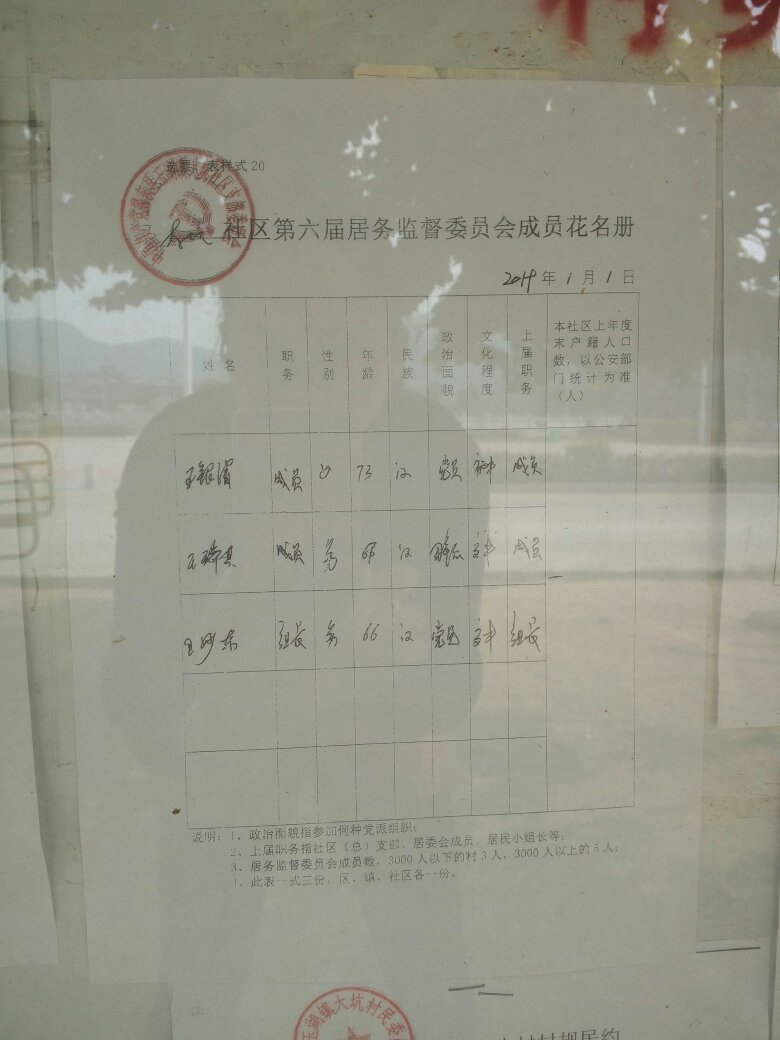 选票、表样式20
社区第六届居务监督委员会成员花名册
2019年1月1日
姓名 职务 性别 年龄 民族 政治面貌 文化程度 上届职务 本社区上年度末户籍人口数，以公安部门统计为准（人）
王银 成员 女 73 汉 党员 成员
王 成员 男 汉 群众 成员
王 组长 男 66 汉 党员 组长
说明：1、政治面貌指参加何种党派组织；
2、上届职务指社区（总）支部、居委会成员、居民小组长等；
3、居务监督委员会成员数，3000人以下的村3人，3000人以上的5人；
4、此表一式三份，区、镇、社区各一份。
湖镇大坑村民委
村规民约